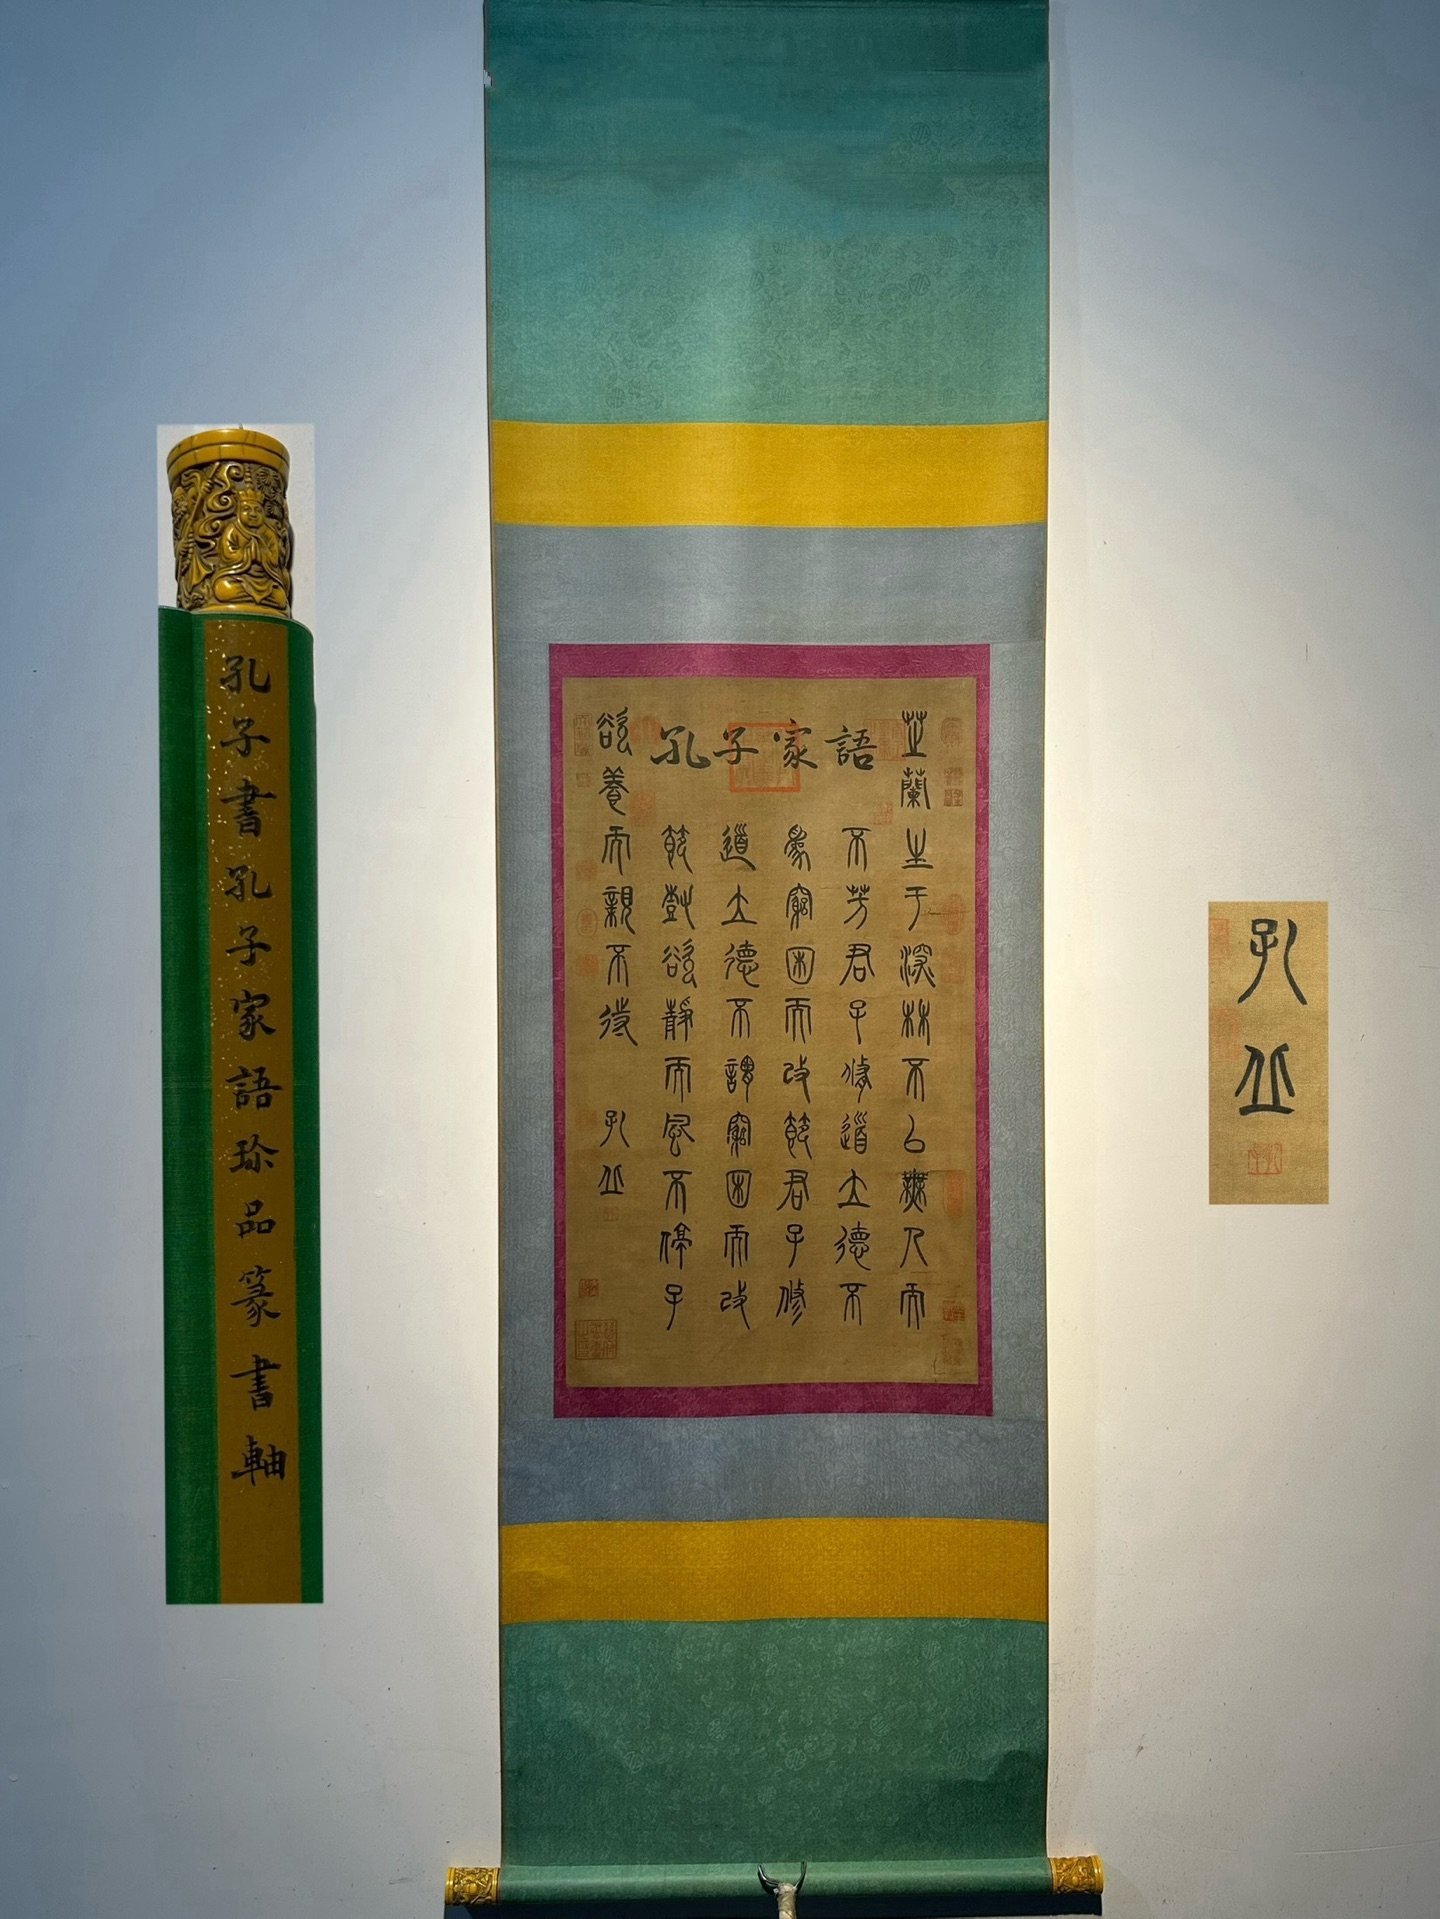 孔子書孔子家語珍品篆書軸
孔子家語
芷蘭生于深林不以無人而
不芳君子修道立德不
為窮困而改節君子修
道立德不謂窮困而改
節樹欲靜而風不停子
欲養而親不待 孔丘
孔丘